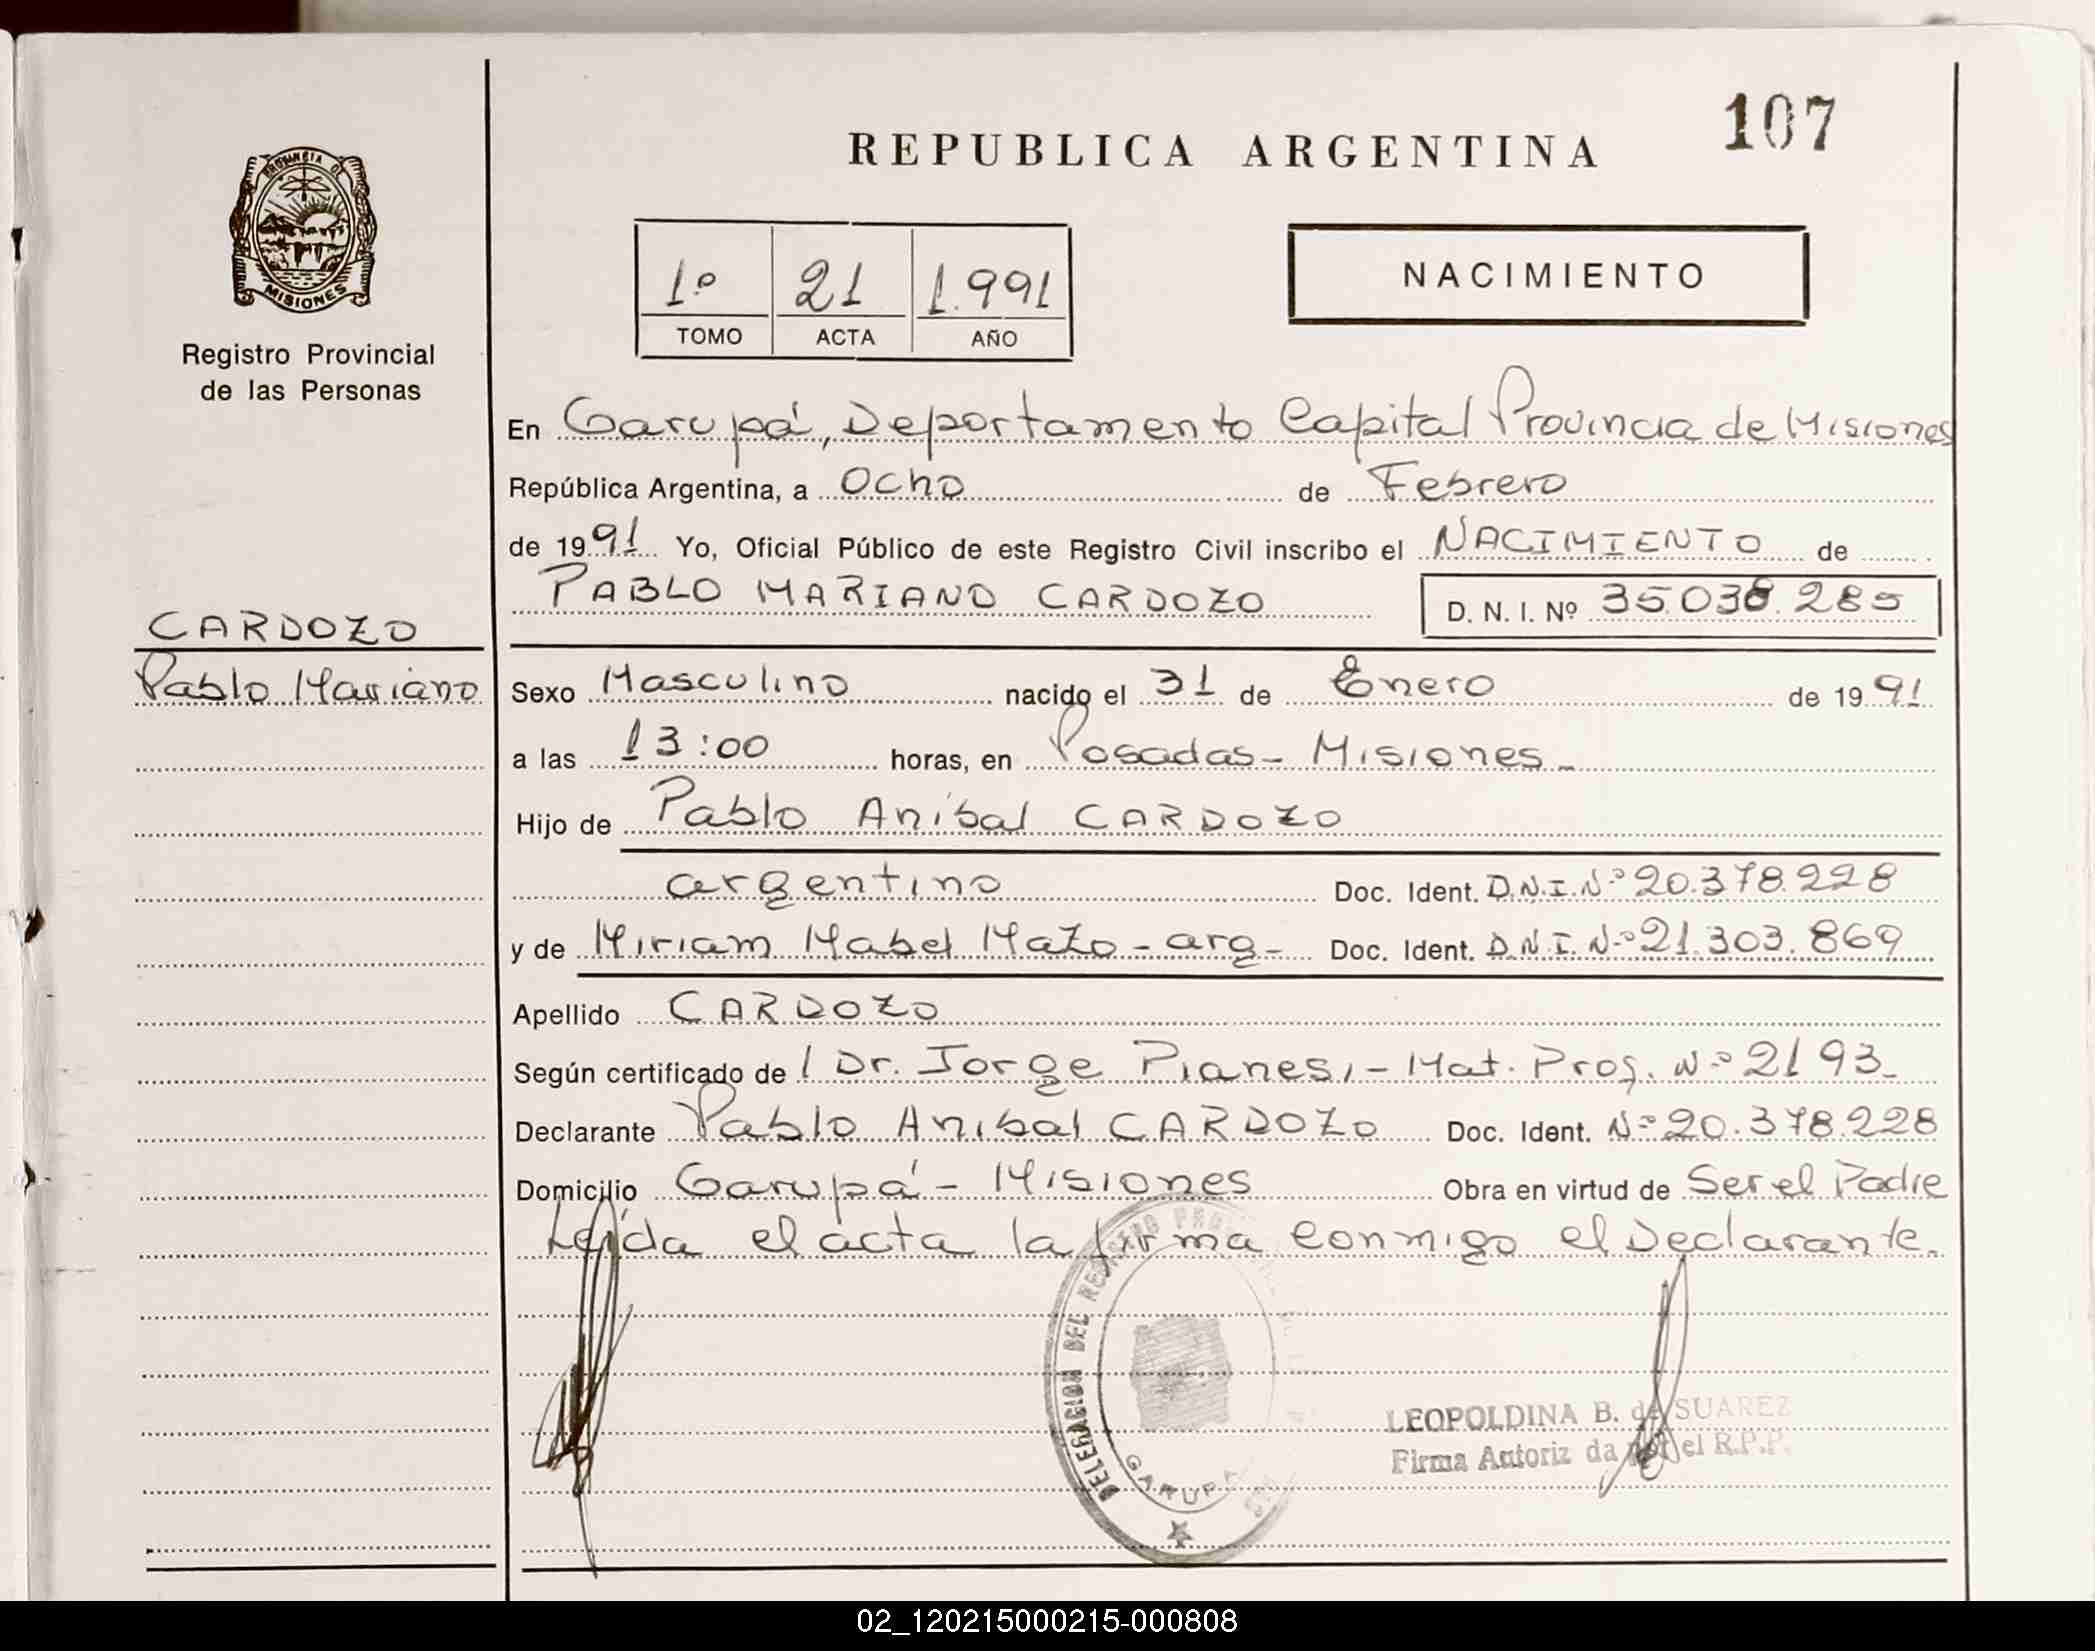 107
REPUBLICA ARGENTINA
PROVINCIA DE
MISIONES
Registro Provincial
de las Personas
1º 21 1.991
TOMO ACTA AÑO
NACIMIENTO
En Garupá, Departamento Capital Provincia de Misiones
República Argentina, a Ocho de Febrero
de 1991 Yo, Oficial Público de este Registro Civil inscribo el NACIMIENTO de
PABLO MARIANO CARDOZO D. N. I. Nº 35.038.285
CARDOZO
Pablo Mariano
Sexo Masculino nacido el 31 de Enero de 1991
a las 13:00 horas, en Posadas - Misiones -
Hijo de Pablo Aníbal CARDOZO
argentino Doc. Ident. D.N.I. Nº 20.378.228
y de Miriam Mabel Mazo - arg - Doc. Ident. D.N.I. Nº 21.303.869
Apellido CARDOZO
Según certificado de l Dr. Jorge Pianesi - Mat. Prof. Nº 2193 -
Declarante Pablo Anibal CARDOZO Doc. Ident. Nº 20.378.228
Domicilio Garupá - Misiones Obra en virtud de Ser el Padre
Leída el acta la firma conmigo el Declarante.
DELEGACION DEL REGISTRO
GARUPA
LEOPOLDINA B. de SUAREZ
Firma Autoriz da por el R.P.P.
02_120215000215-000808